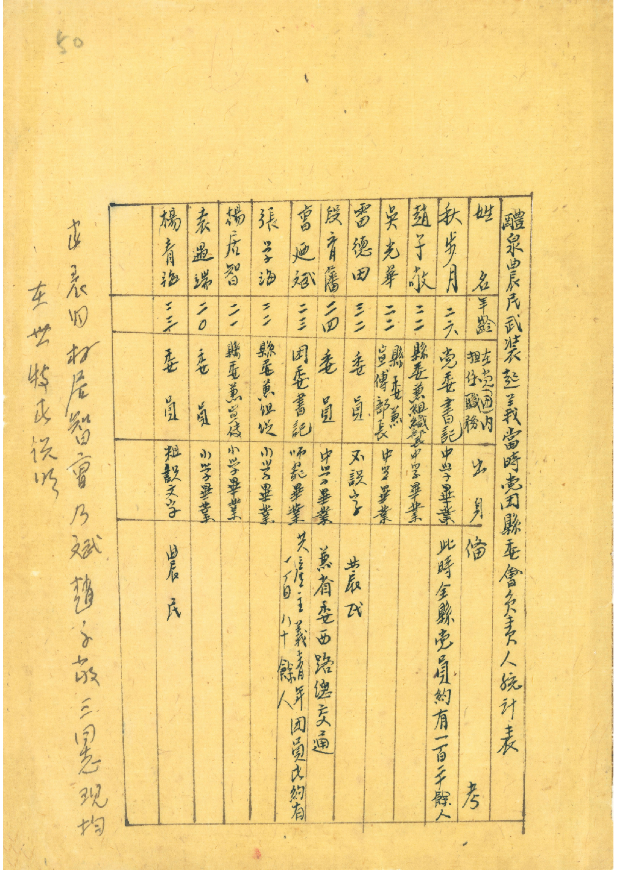 50
醴泉農民武装起義當時党团縣委會负责人統計表
姓名 年齡 在党(团)内担任職務 出身 備考
秋步月 二六 党委書記 中學畢業 此時全縣党員約有一百二十餘人
趙子敬 二二 縣委兼組織部 中学畢業
吳光華 二二 縣委兼宣傳部長 中学畢業
雷德田 三二 委員 不誤字 農民
段育藩 二四 委員 中学畢業 兼省委西路總交通
曹迺斌 二三 团委書記 师范畢業 共産主義青年团員約有一百八十餘人
張学海 二二 縣委兼组织 小学畢業
楊居智 二一 縣委兼宣传 小学畢業
袁過瑞 二〇 委員 小学畢業
楊青海 二三 委員 粗識文字 農民
居智曹乃斌趙子敬三同志現均
在世特此説明